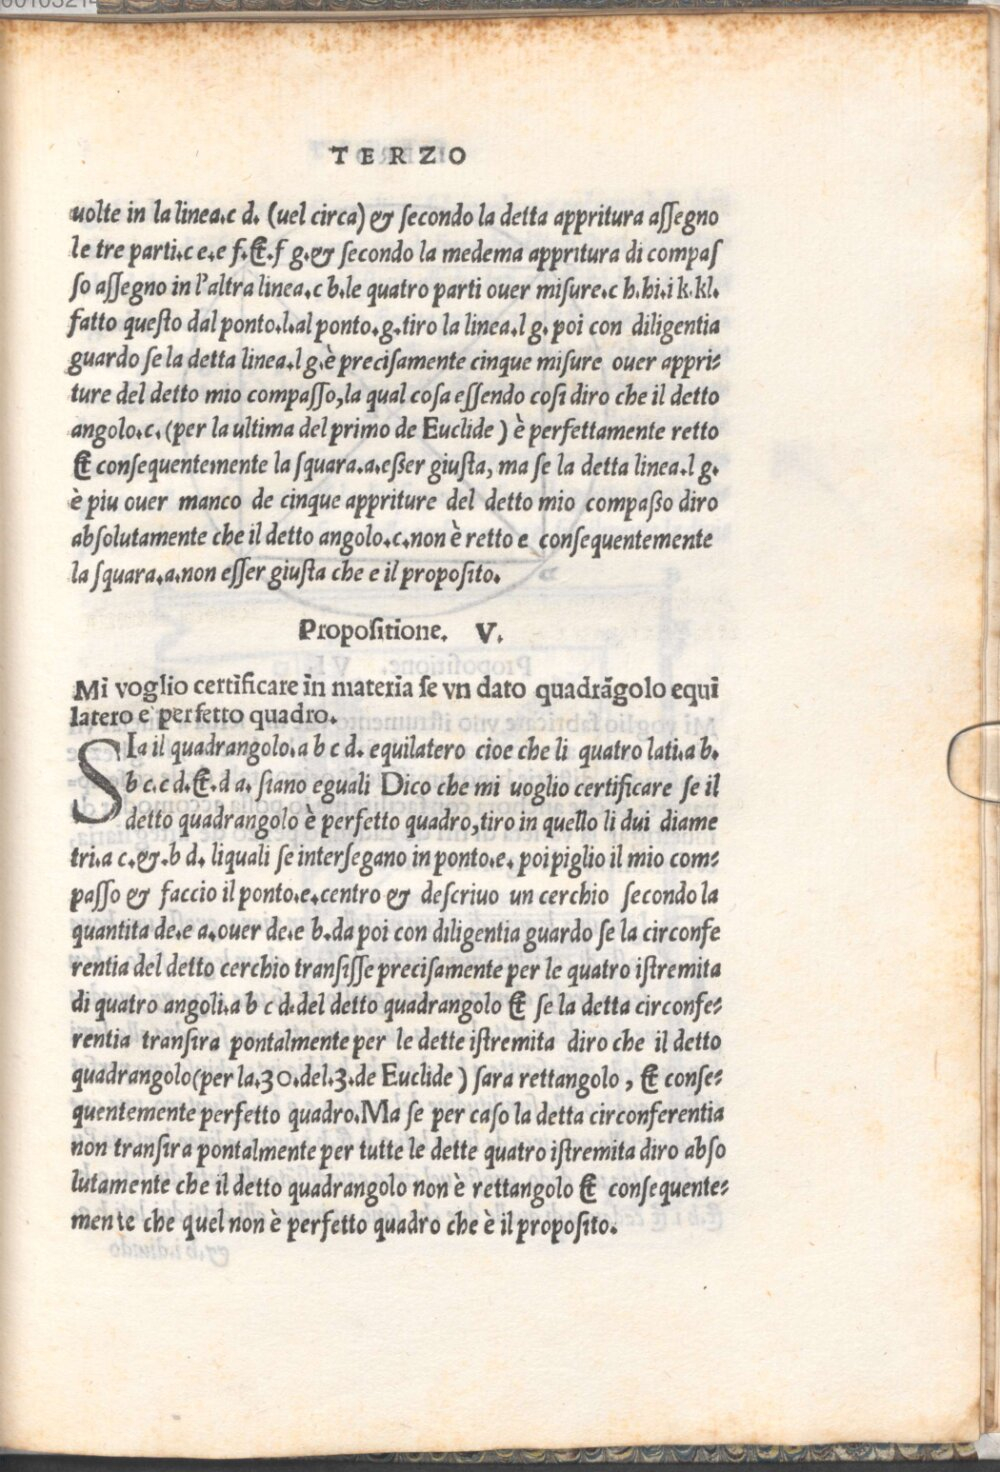 TERZO
uolte in la linea.c d. (uel circa) & secondo la detta appritura assegno
le tre parti.c e.e f.&.f g.& secondo la medema appritura di compas
so assegno in l'altra linea.c b.le quatro parti ouer misure.c h.hi.i k.kl.
fatto questo dal ponto.l.al ponto.g.tiro la linea.l g. poi con diligentia
guardo se la detta linea.l g.è precisamente cinque misure ouer appri-
ture del detto mio compasso,la qual cosa essendo cosi diro che il detto
angolo.c.(per la ultima del primo de Euclide) è perfettamente retto
& consequentemente la squara.a.eßer giusta, ma se la detta linea.l g.
è piu ouer manco de cinque appriture del detto mio compaßo diro
absolutamente che il detto angolo.c.non è retto e consequentemente
la squara.a.non esser giusta che e il proposito.
Propositione. V.
Mi voglio certificare in materia se vn dato quadrãgolo equi
latero e perfetto quadro.
SIa il quadrangolo.a b c d. equilatero cioe che li quatro lati.a b.
b c.c d.&.d a. siano eguali Dico che mi uoglio certificare se il
detto quadrangolo è perfetto quadro,tiro in quello li dui diame
tri.a c.&.b d. liquali se intersegano in ponto.e. poi piglio il mio com-
passo & faccio il ponto.e.centro & descriuo un cerchio secondo la
quantita de.e a.ouer de.e b.da poi con diligentia guardo se la circonfe
rentia del detto cerchio transisse precisamente per le quatro istremita
di quatro angoli.a b c d.del detto quadrangolo & se la detta circonfe-
rentia transira pontalmente per le dette istremita diro che il detto
quadrangolo(per la.30.del.3.de Euclide) sara rettangolo, & conse-
quentemente perfetto quadro.Ma se per caso la detta circonferentia
non transira pontalmente per tutte le dette quatro istremita diro abso
lutamente che il detto quadrangolo non è rettangolo & consequente-
mente che quel non è perfetto quadro che è il proposito.